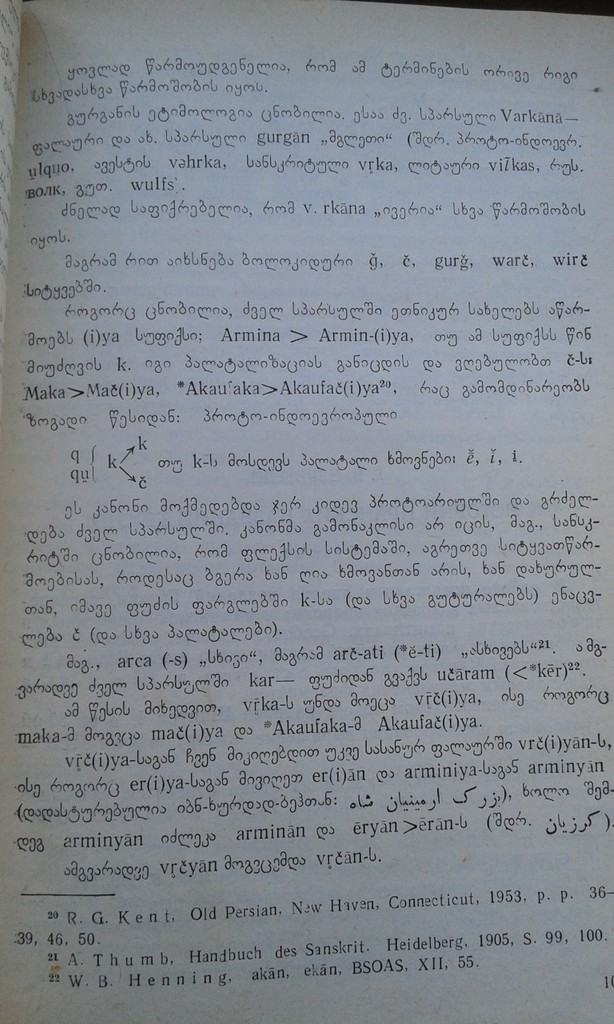 ყოვლად წარმოუდგენელია, რომ ამ ტერმინების ორივე რიგი
სხვადასხვა წარმოშობის იყოს.
გურგანის ეტიმოლოგია ცნობილია. ესაა ძვ. სპარსული Varkānā—
ფალაური და ახ. სპარსული gurgān „მგლეთი“ (შდრ. პროტო-ინდოევრ.
u̯lquo, ავესტის vəhrka, სანსკრიტული vṛka, ლიტაური vilkas, რუს.
волк, გუთ. wulfs).
ძნელად საფიქრებელია, რომ v. rkāna „ივერია“ სხვა წარმოშობის
იყოს.
მაგრამ რით აიხსნება ბოლოკიდური ǧ, č, gurǧ, warč, wirč
სიტყვებში.
როგორც ცნობილია, ძველ სპარსულში ეთნიკურ სახელებს აწარ-
მოებს (i)ya სუფიქსი; Armina > Armin-(i)ya, თუ ამ სუფიქსს წინ
მიუძღვის k. იგი პალატალიზაციას განიცდის და ვღებულობთ č-ს:
Maka>Mač(i)ya, *Akaufaka>Akaufač(i)ya²⁰, რაც გამომდინარეობს
ზოგადი წესიდან: პროტო-ინდოევროპული
k
q
qu̯ k თუ k-ს მოსდევს პალატალი ხმოვნები: ē̆, ī̆, i̯.
č
ეს კანონი მოქმედებდა ჯერ კიდევ პროტოარიულში და გრძელ-
დება ძველ სპარსულში. კანონმა გამონაკლისი არ იცის, მაგ., სანსკ-
რიტში ცნობილია, რომ ფლექსის სისტემაში, აგრეთვე სიტყვათწარ-
მოებისას, როდესაც ბგერა ხან ღია ხმოვანთან არის, ხან დახურულ-
თან, იმავე ფუძის ფარგლებში k-სა (და სხვა გუტურალებს) ენაცვ-
ლება č (და სხვა პალატალები).
მაგ., arca (-s) „სხივი“, მაგრამ arč-ati (*ĕ-ti) „ასხივებს“²¹. ამგ-
ვარადვე ძველ სპარსულში kar— ფუძიდან გვაქვს učāram (<*kēr)²².
ამ წესის მიხედვით, vṛka-ს უნდა მოეცა vṛč(i)ya, ისე როგორც
maka-მ მოგვცა mač(i)ya და *Akaufaka-მ Akaufač(i)ya.
vṛč(i)ya-საგან ჩვენ მივიღებდით უკვე სასანურ ფალაურში vrč(i)yān-ს,
ისე როგორც er(i)ya-საგან მივიღეთ er(i)ān და arminiya-საგან arminyān
(დადასტურებულია იბნ-ხურდად-ბეჰთან: بزرك ارمينيان شاه), ხოლო შემ-
დეგ arminyān იძლევა arminān და ēryān>ērān-ს (შდრ. كرزيان).
ამგვარადვე vṛčyān მოგვცემდა vṛčān-ს.
²⁰ R. G. Kent, Old Persian, New Haven, Connecticut, 1953, p. p. 36—
39, 46, 50.
²¹ A. Thumb, Handbuch des Sanskrit. Heidelberg, 1905, S. 99, 100.
²² W. B. Henning, akān, ekān, BSOAS, XII, 55.